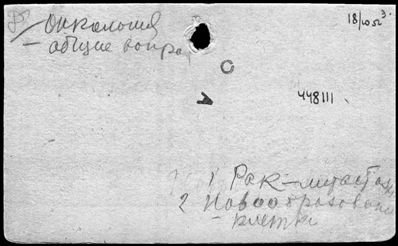 Онкология
- общие вопро
18/10 52 3.
448111.
1 Рак - метастазы
2 Новообразования
- клетки